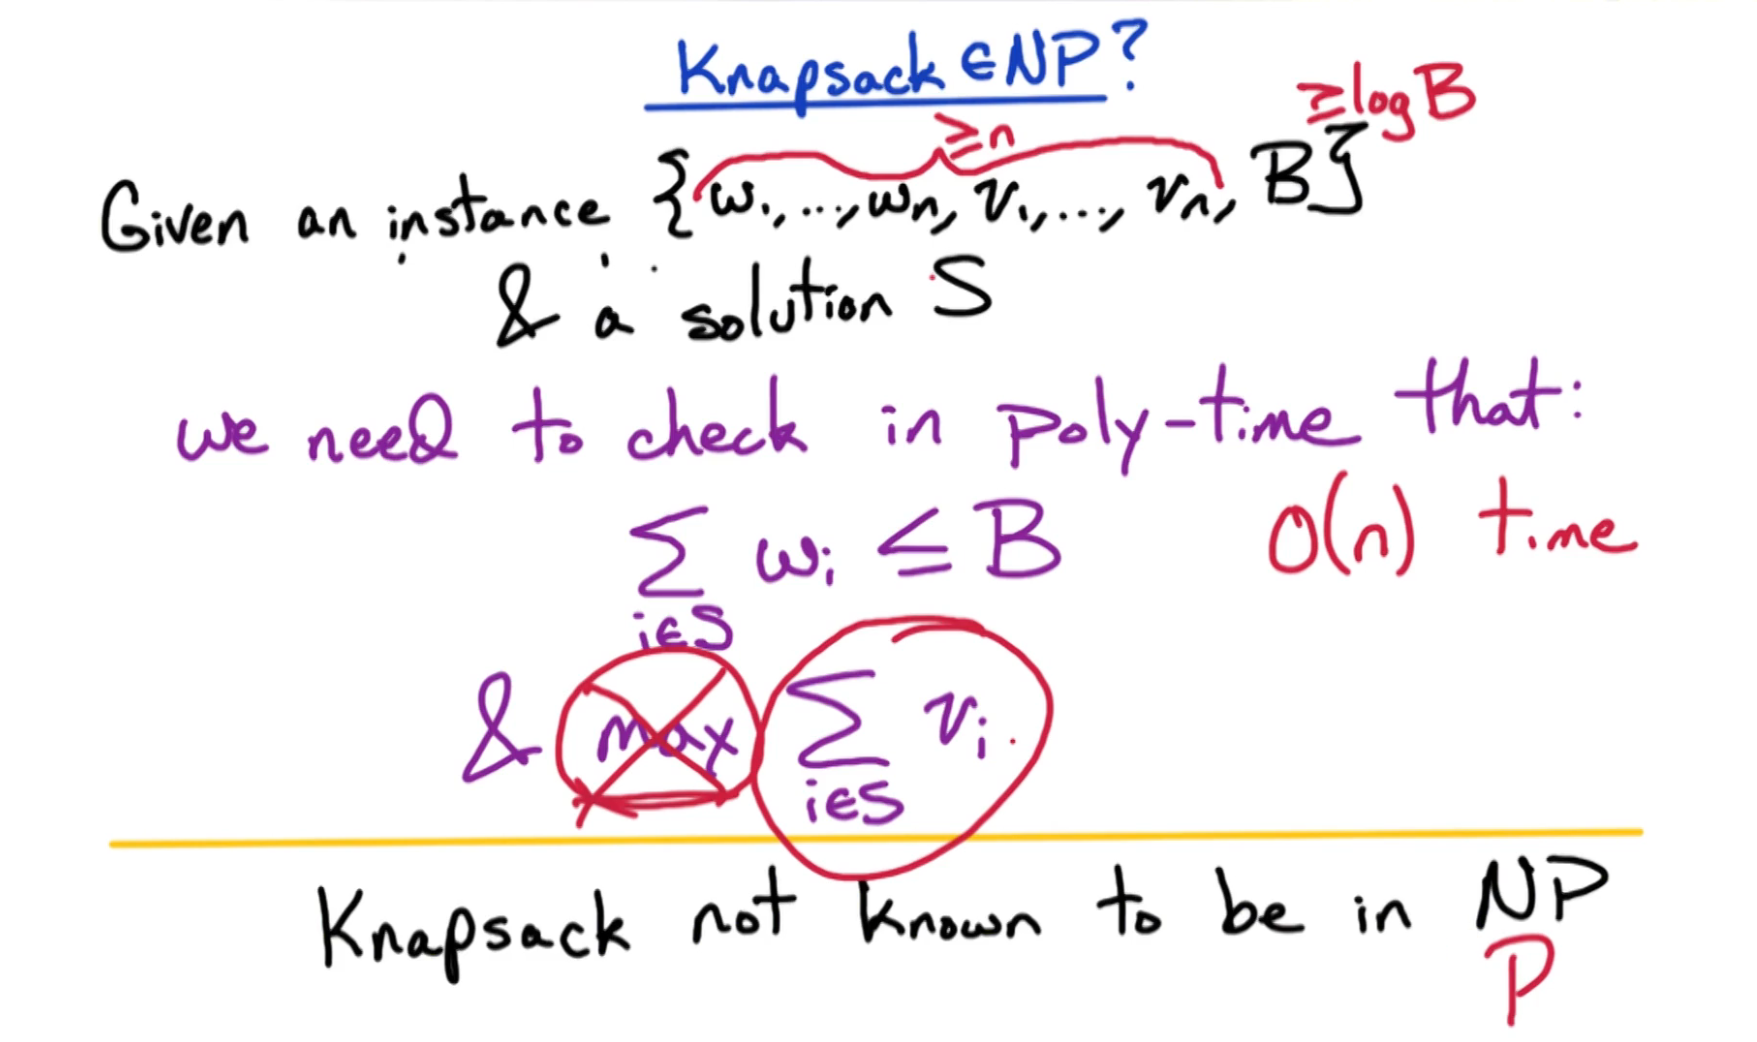 Knapsack ∈ NP?
≥ log B
≥ n
Given an instance {w₁,...,wn, v₁,..., vn, B}
& a solution S
we need to check in poly-time that:
∑ wᵢ ≤ B O(n) time
i∈S
& max ∑ vᵢ
i∈S
Knapsack not known to be in NP
P